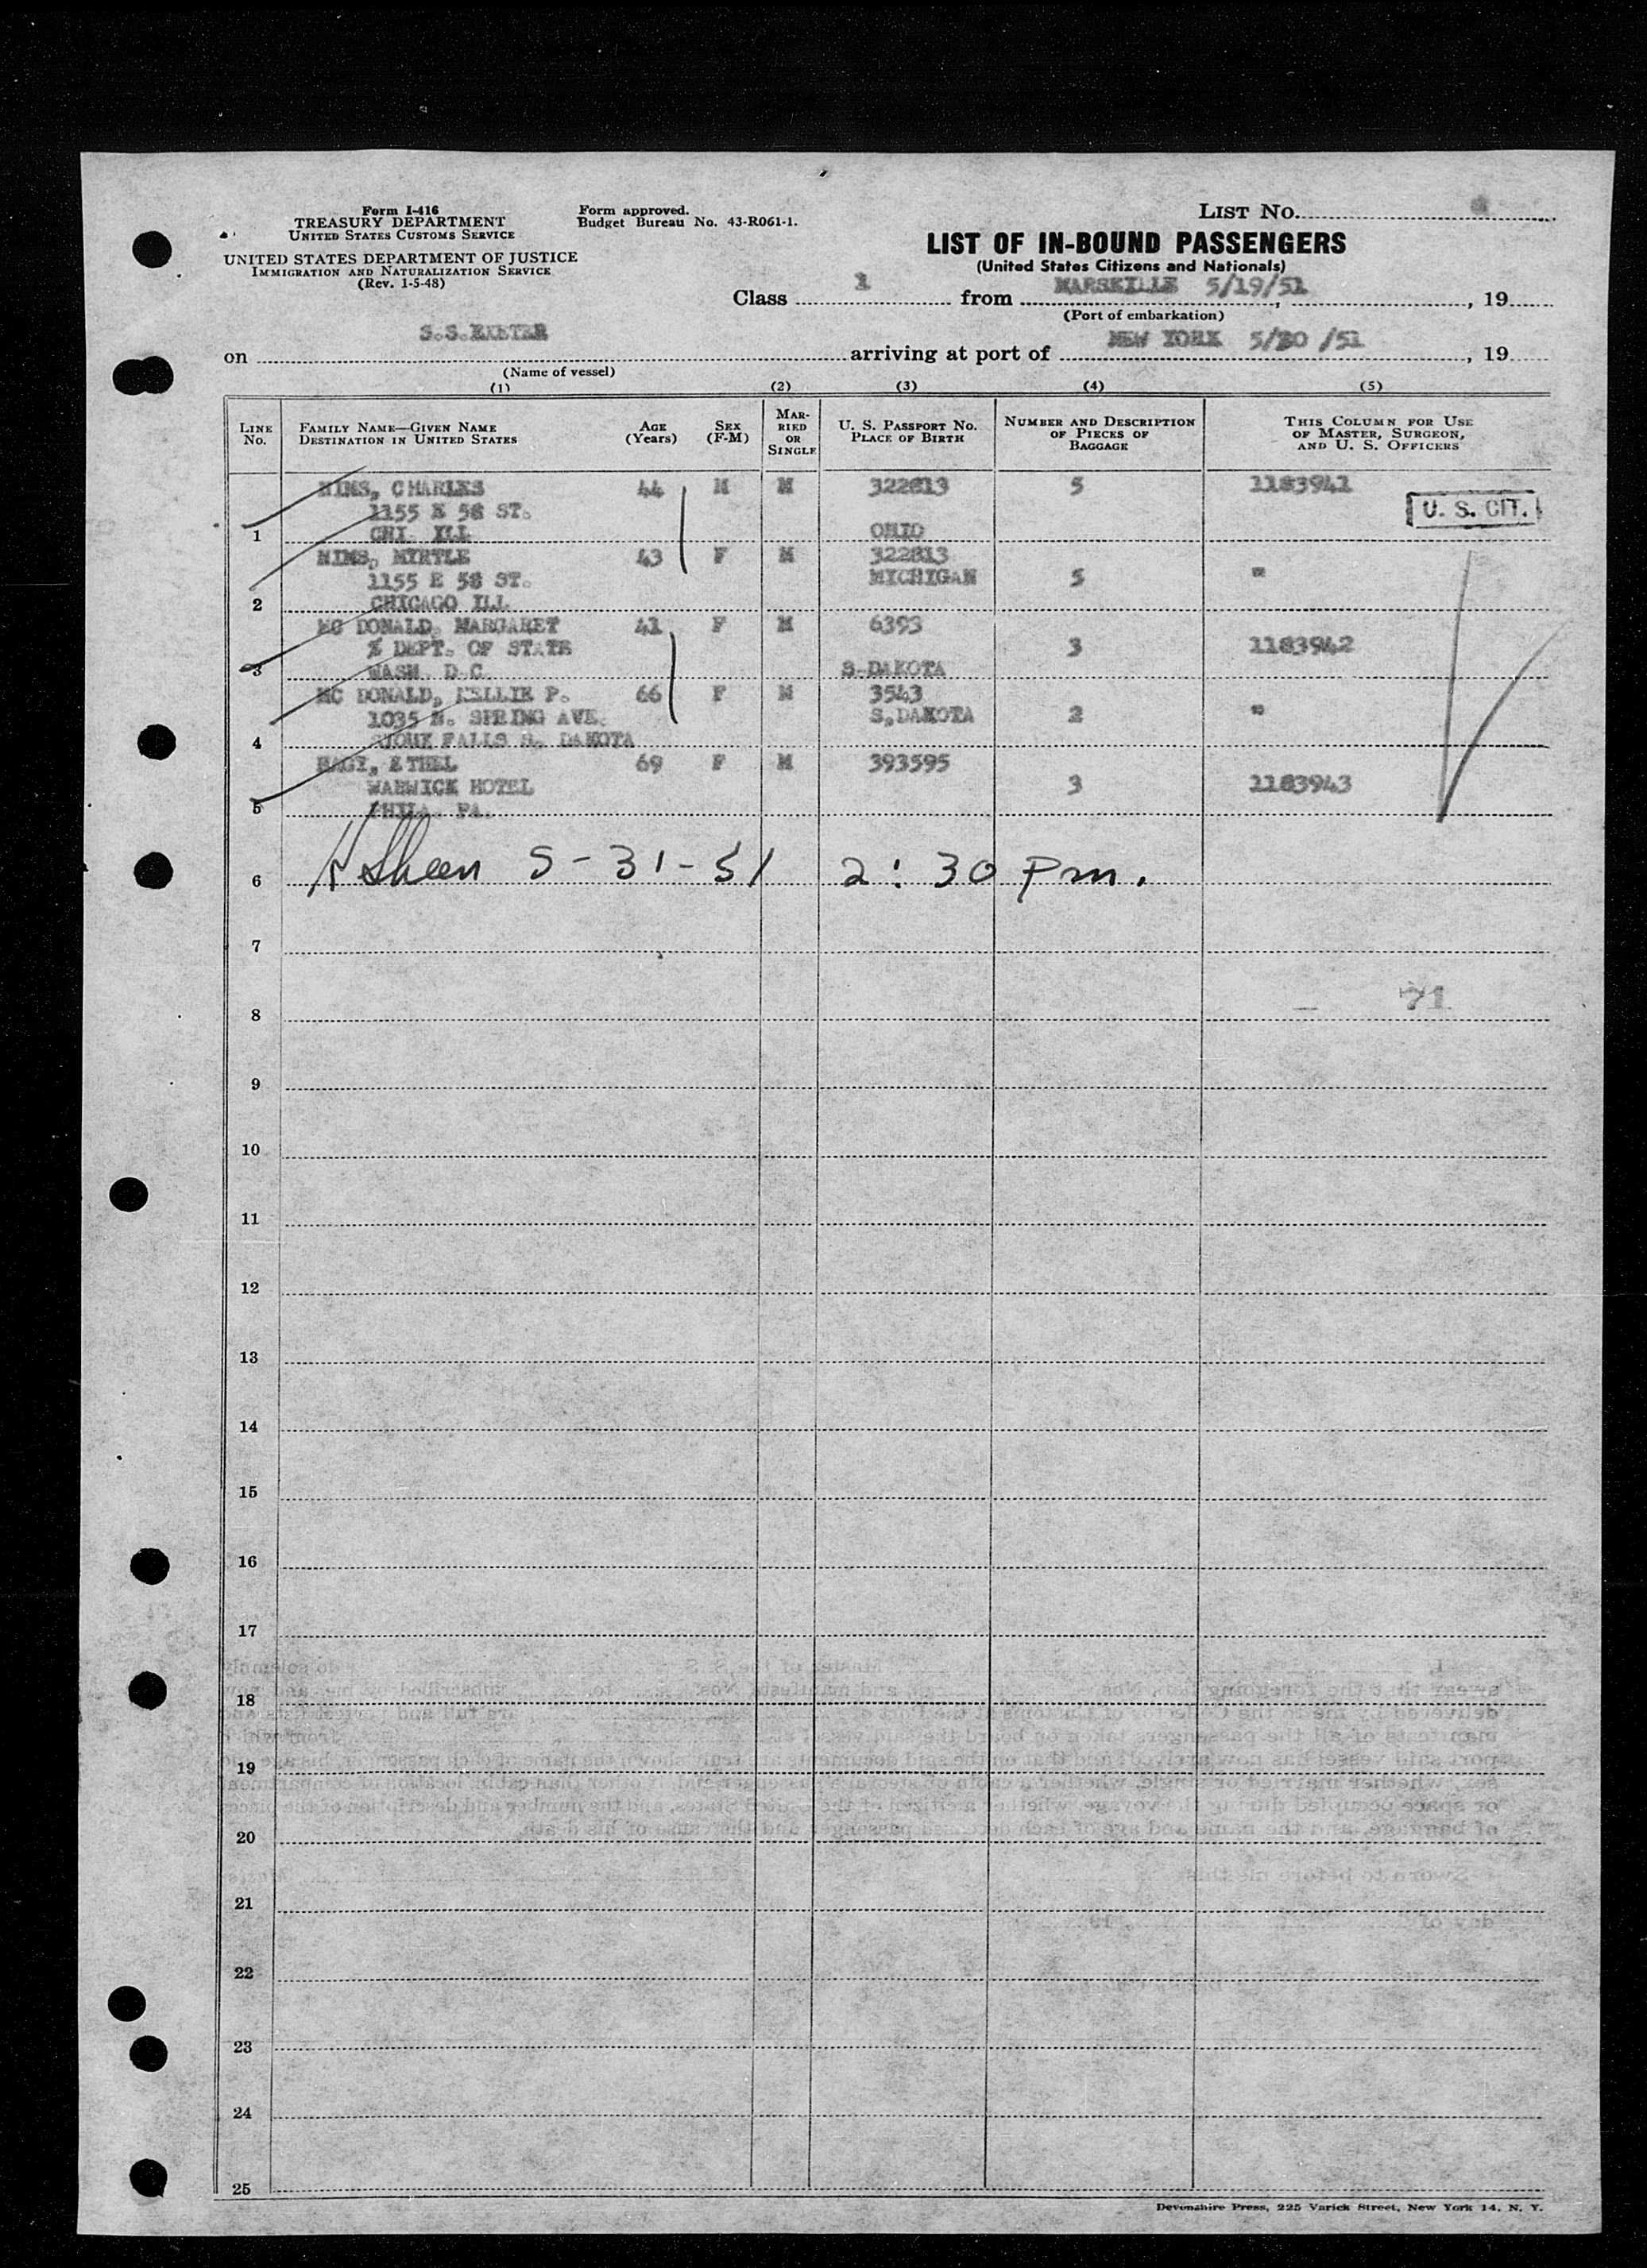 Form I-416
TREASURY DEPARTMENT
UNITED STATES CUSTOMS SERVICE
UNITED STATES DEPARTMENT OF JUSTICE
IMMIGRATION AND NATURALIZATION SERVICE
(Rev. 1-5-48)
Form approved.
Budget Bureau No. 43-R061-1.
LIST No.
LIST OF IN-BOUND PASSENGERS
(United States Citizens and Nationals)
Class 1 from MARSEILLE 5/19/51, , 19
(Port of embarkation)
on S.S.EXETER arriving at port of NEW YORK 5/30 /51, 19
(Name of vessel)
(1) (2) (3) (4) (5)
LINE No. FAMILY NAME—GIVEN NAME DESTINATION IN UNITED STATES AGE (Years) SEX (F-M) MARRIED OR SINGLE U. S. PASSPORT No. PLACE OF BIRTH NUMBER AND DESCRIPTION OF PIECES OF BAGGAGE THIS COLUMN FOR USE OF MASTER, SURGEON, AND U. S. OFFICERS
NIMS, CHARLES 44 M M 322813 5 1183941
1155 E 58 ST. U. S. CIT.
1 CHI ILL OHIO
NIMS, MYRTLE 43 F M 322813
1155 E 58 ST. MICHIGAN 5 "
2 CHICAGO ILL
MC DONALD, MARGARET 41 F M 6393
% DEPT. OF STATE 3 1183942
3 WASH D C S-DAKOTA
MC DONALD, NELLIE P. 66 F M 3543
1035 N. SPRING AVE. S.DAKOTA 2 "
4 SIOUX FALLS S. DAKOTA
NAGY, ETHEL 69 F M 393595
WARWICK HOTEL 3 1183943
5 PHILA. PA.
6 Sheen 5-31-51 2:30 Pm.
7
71
8
9
10
11
12
13
14
15
16
17
18
19
20
21
22
23
24
25
Devonshire Press, 225 Varick Street, New York 14, N. Y.